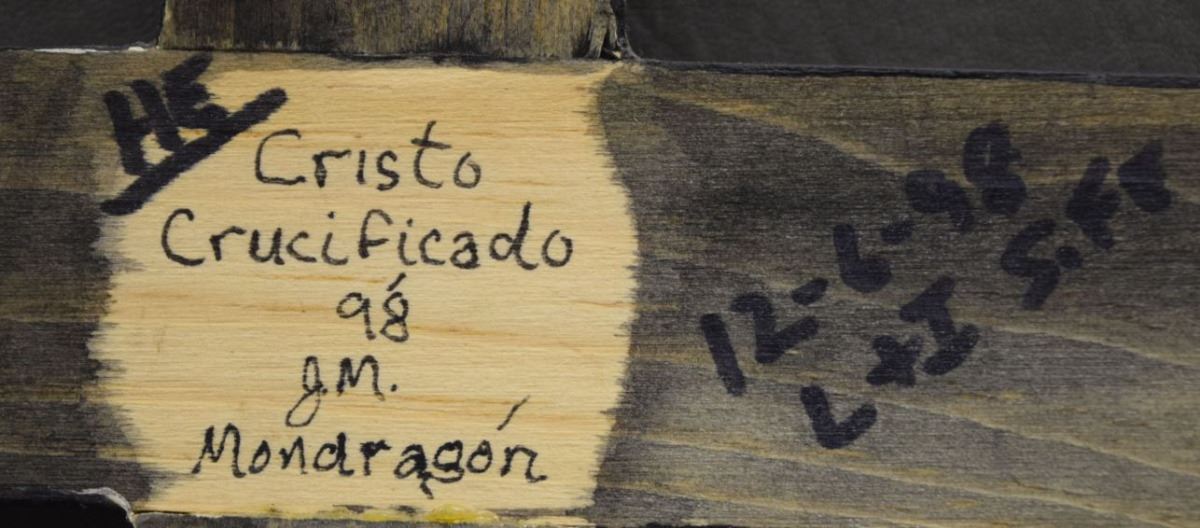 HE
Cristo
Crucificado
98
J.M.
Mondragón
12-6-98
L+I S.Fe